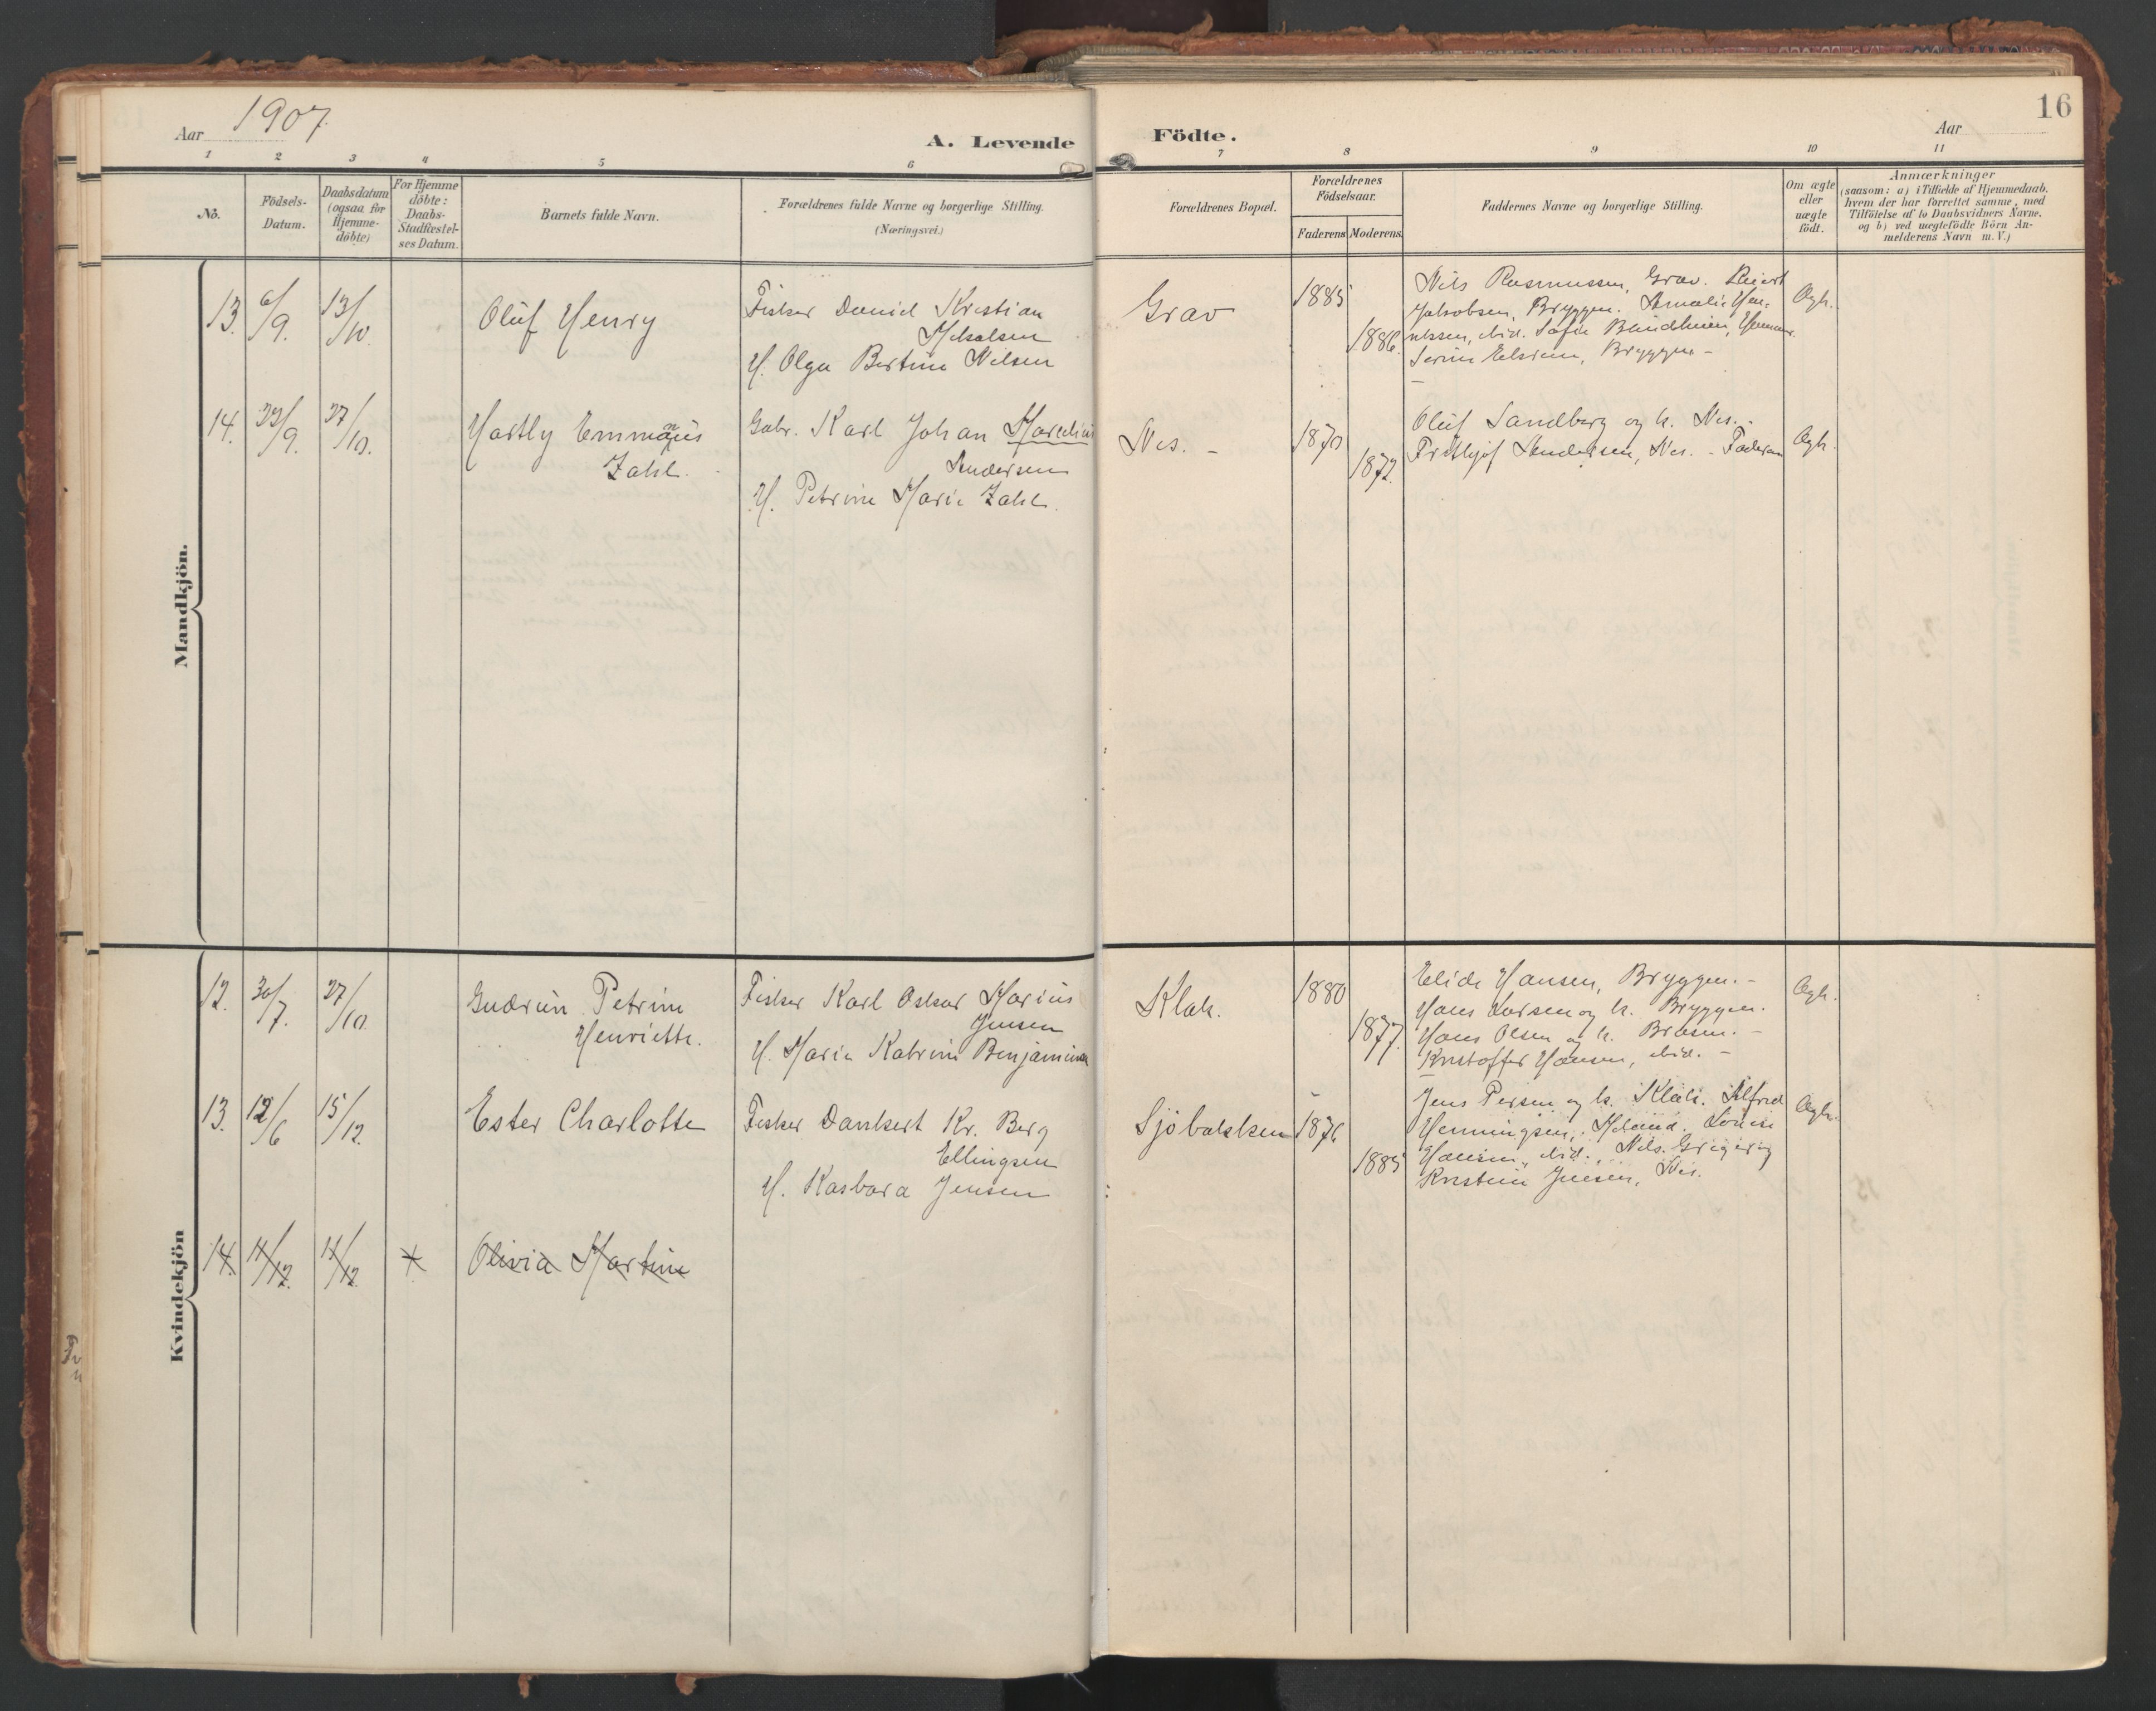 Aar 1907
A. Levende Födte.
16
Aar
1 2 3 4 5 6 7 8 9 10 11
No.
Födsels-
Datum.
Daabsdatum
(ogsaa for
Hjemme-
döbte)
For Hjemme
döbte:
Daabs-
Stadfæstel-
ses Datum.
Barnets fulde Navn.
Forældrenes fulde Navne og borgerlige Stilling.
(Næringsvei.)
Forældrenes Bopæl.
Forældrenes
Födselsaar.
Faderens Moderens
Faddernes Navne og borgerlige Stilling.
Om ægte
eller
uægte
födt.
Anmærkninger
(saasom: a) i Tilfælde af Hjemmedaab.
hvem der har forrettet samme, med
Tilföielse af to Daabsvidners Navne,
og b) ved uægtefödte Börn An-
melderens Navn m. V.)
Mandkjön.
13. 6/9. 13/10. Oluf Henry
Fisker Daniel Kristian
H. Olga Bertine Nilsen
Grav
1885
1886.
Nils Rasmussen, Grav.
Jakobsen, Bryggen. Amalie Hen-
ibid. Sofie
Bryggen -
Ægte.
14. 22/9. 27/10. Hartly Emmanus
Zahl.
Gabr. Karl Johan Marelius
Andersen
H. Petrine Marie Zahl.
Nes. -
1870
1872.
Oluf Sandberg og h. Nes. -
Frithjof Andersen, Nes. - Faderen
Ægte.
Kvindekjön
12. 30/7. 27/10. Gudrun Petrine
Henriette.
Fisker Karl Oskar Marius
Jensen
H. Marie Katrine Benjaminsen
Klak.
1880
1877.
Elide Hansen, Bryggen. -
Hans Larsen og h. Bryggen.
Hans Olsen og h. Bråsen. -
Kristoffer Hansen, ibid. -
Ægte.
13. 12/6 15/12. Ester Charlotte
Fisker Dankert Kr. Berg
Ellingsen
H. Kasbara Jensen
Sjöbakken
1876
1885
Jens Persen og h. Klak. Alfred
Henningsen, Louise
Hansen, ibid., Nils
Kristine Jensen, Nes.
Ægte.
14. 11/12. 11/12. + Olivia Martine